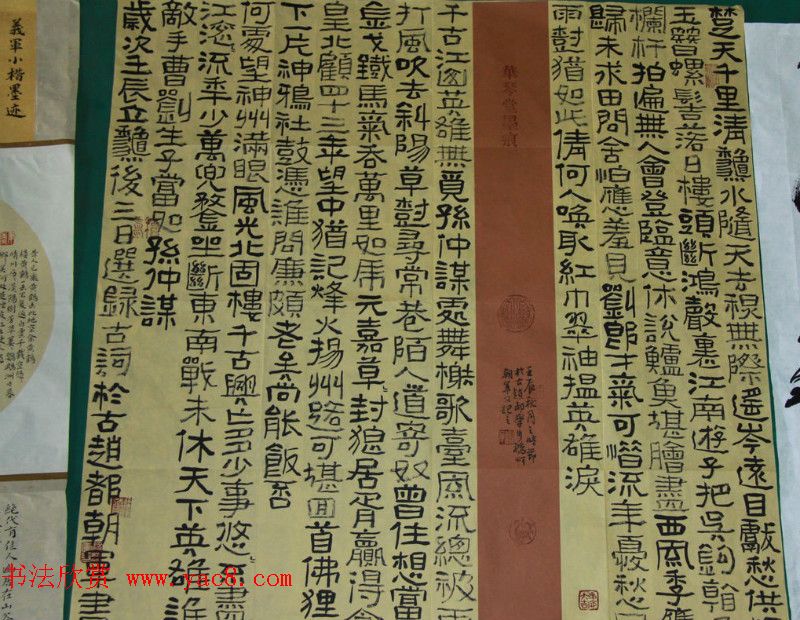 楚天千里清龝水隨天去秋無際遥岑遠目獻愁供
玉簪螺髻落日樓頭斷鴻聲裏江南遊子把吳鉤
欄杆拍遍無人會登臨意休說鱸魚堪膾盡西風季鷹
歸未求田問舍怕應羞見劉郎才氣可惜流年憂愁
雨樹猶如此倩何人喚取紅巾翠袖揾英雄淚
華琴堂墨痕
千古江山英雄無覓孫仲謀處舞榭歌臺風流總被雨
打風吹去斜陽草樹尋常巷陌人道寄奴曾住想當
金戈鐵馬氣吞萬里如虎元嘉草封狼居胥贏得倉
皇北顧四十三年望中猶記烽火揚州路可堪回首佛狸
下一片神鴉社鼓憑誰問廉頗老矣尚能飯否
何處望神州滿眼風光北固樓千古興亡多少事悠悠盡
江滾流年少萬兜鍪坐斷東南戰未休天下英雄誰
敵手曹劉生子當如孫仲謀
歲次壬辰立龝後三日選録古詞於古趙都朝軍書
義軍小楷墨迹
絕代有佳人
书法欣赏 www.yac8.com